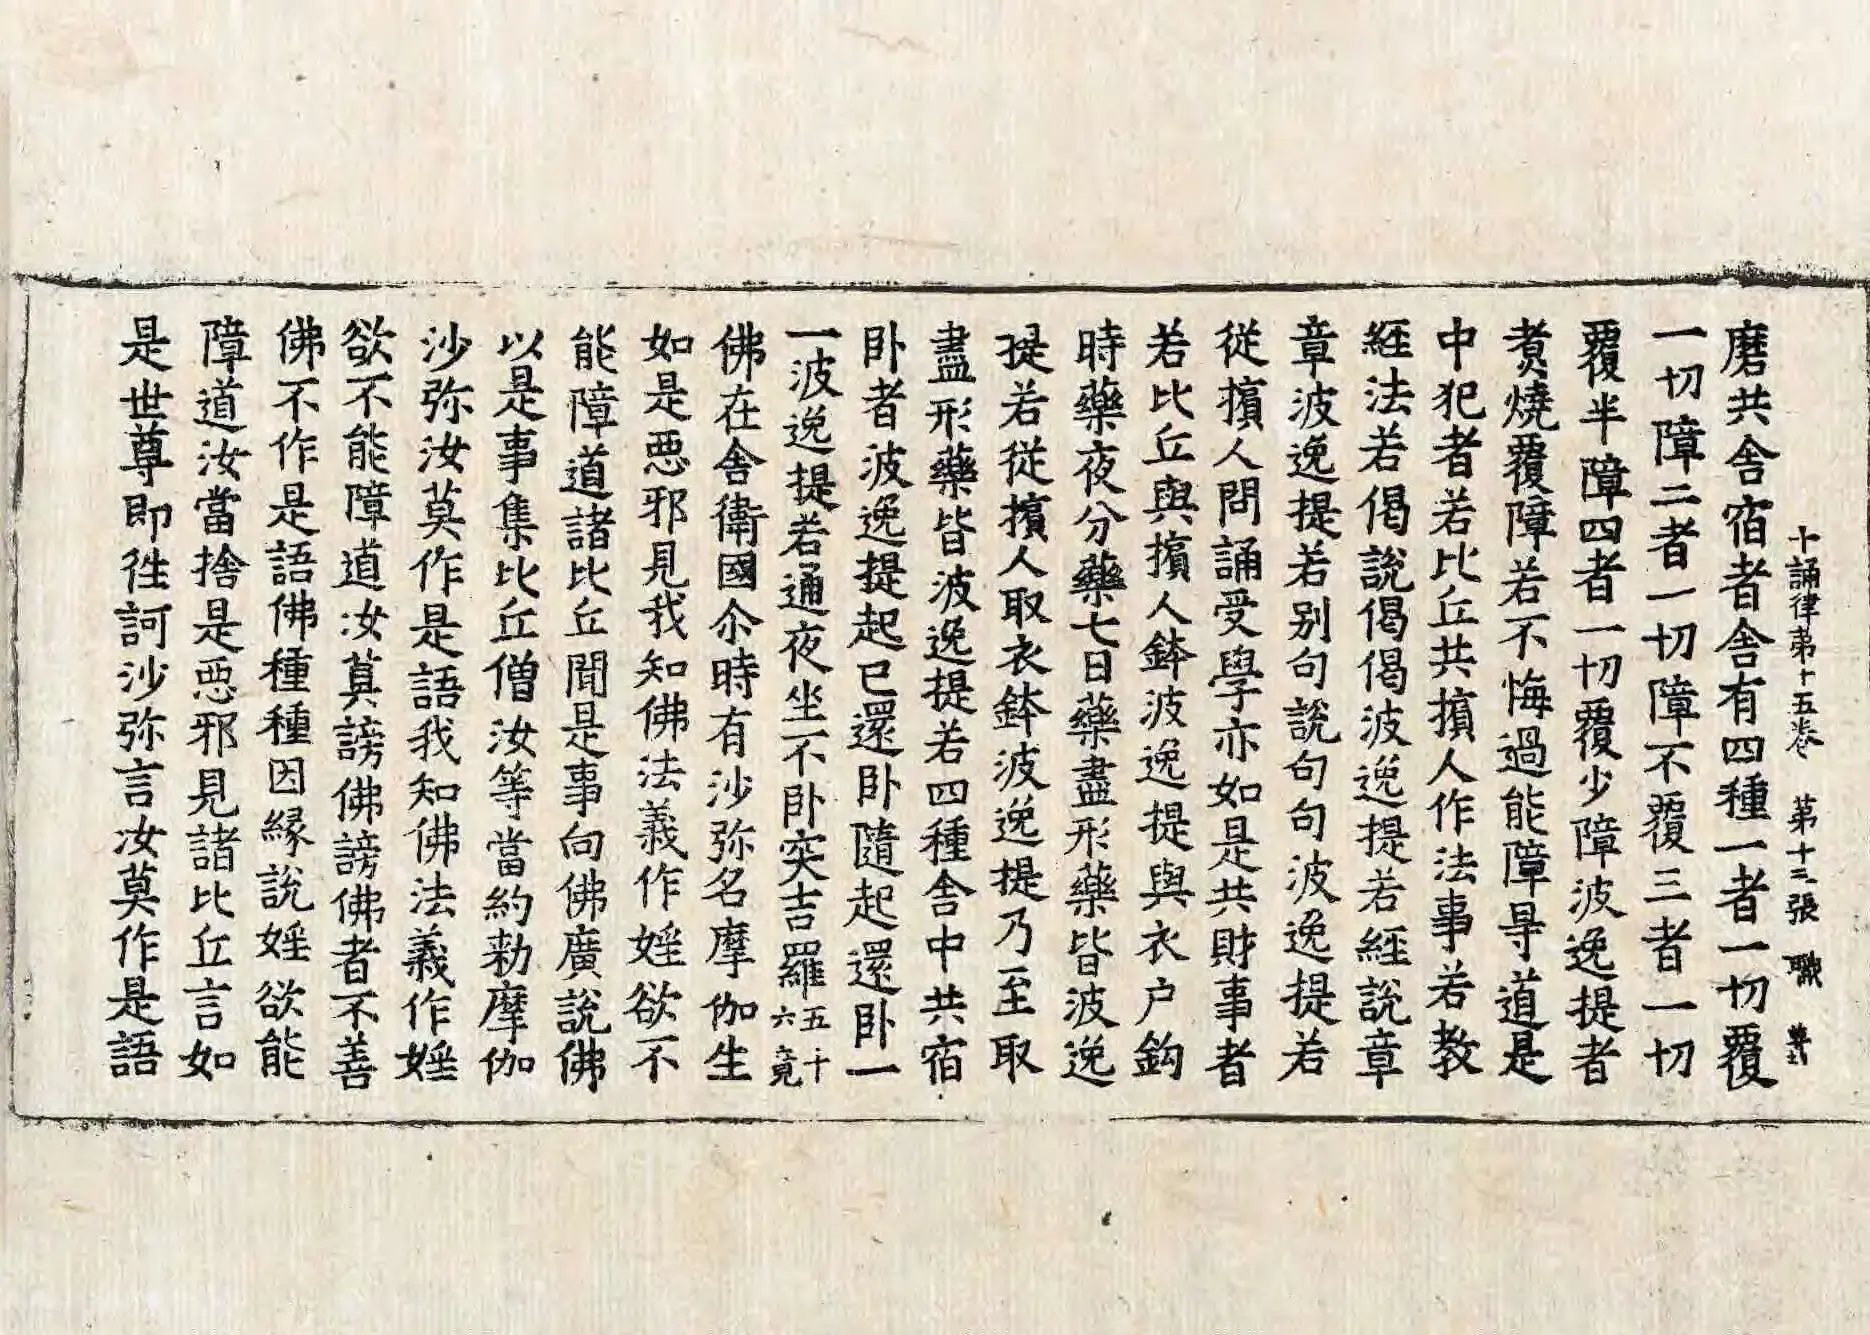 十誦律苐十五卷 第十三張 職
磨共舍宿者舍有四種一者一切覆
一切障二者一切障不覆三者一切
覆半障四者一切覆少障波逸提者
煑燒覆障若不悔過能障㝵道是
中犯者若比丘共擯人作法事若教
経法若偈說偈偈波逸提若經說章
章波逸提若别句說句句波逸提若
從擯人問誦受學亦如是共財事者
若比丘與擯人鉢波逸提與衣户鈎
時藥夜分藥七日藥盡形藥皆波逸
提若從擯人取衣鉢波逸提乃至取
盡形藥皆波逸提若四種舍中共宿
卧者波逸提起已還卧隨起還卧一
一波逸提若通夜坐不卧突吉羅五十六竟
佛在舍衛國尒時有沙弥名摩伽生
如是悪邪見我知佛法義作婬欲不
能障道諸比丘聞是事向佛廣說佛
以是事集比丘僧汝等當約勑摩伽
沙弥汝莫作是語我知佛法義作婬
欲不能障道汝莫謗佛謗佛者不善
佛不作是語佛種種因縁說婬欲能
障道汝當捨是悪邪見諸比丘言如
是世尊即徃訶沙弥言汝莫作是語